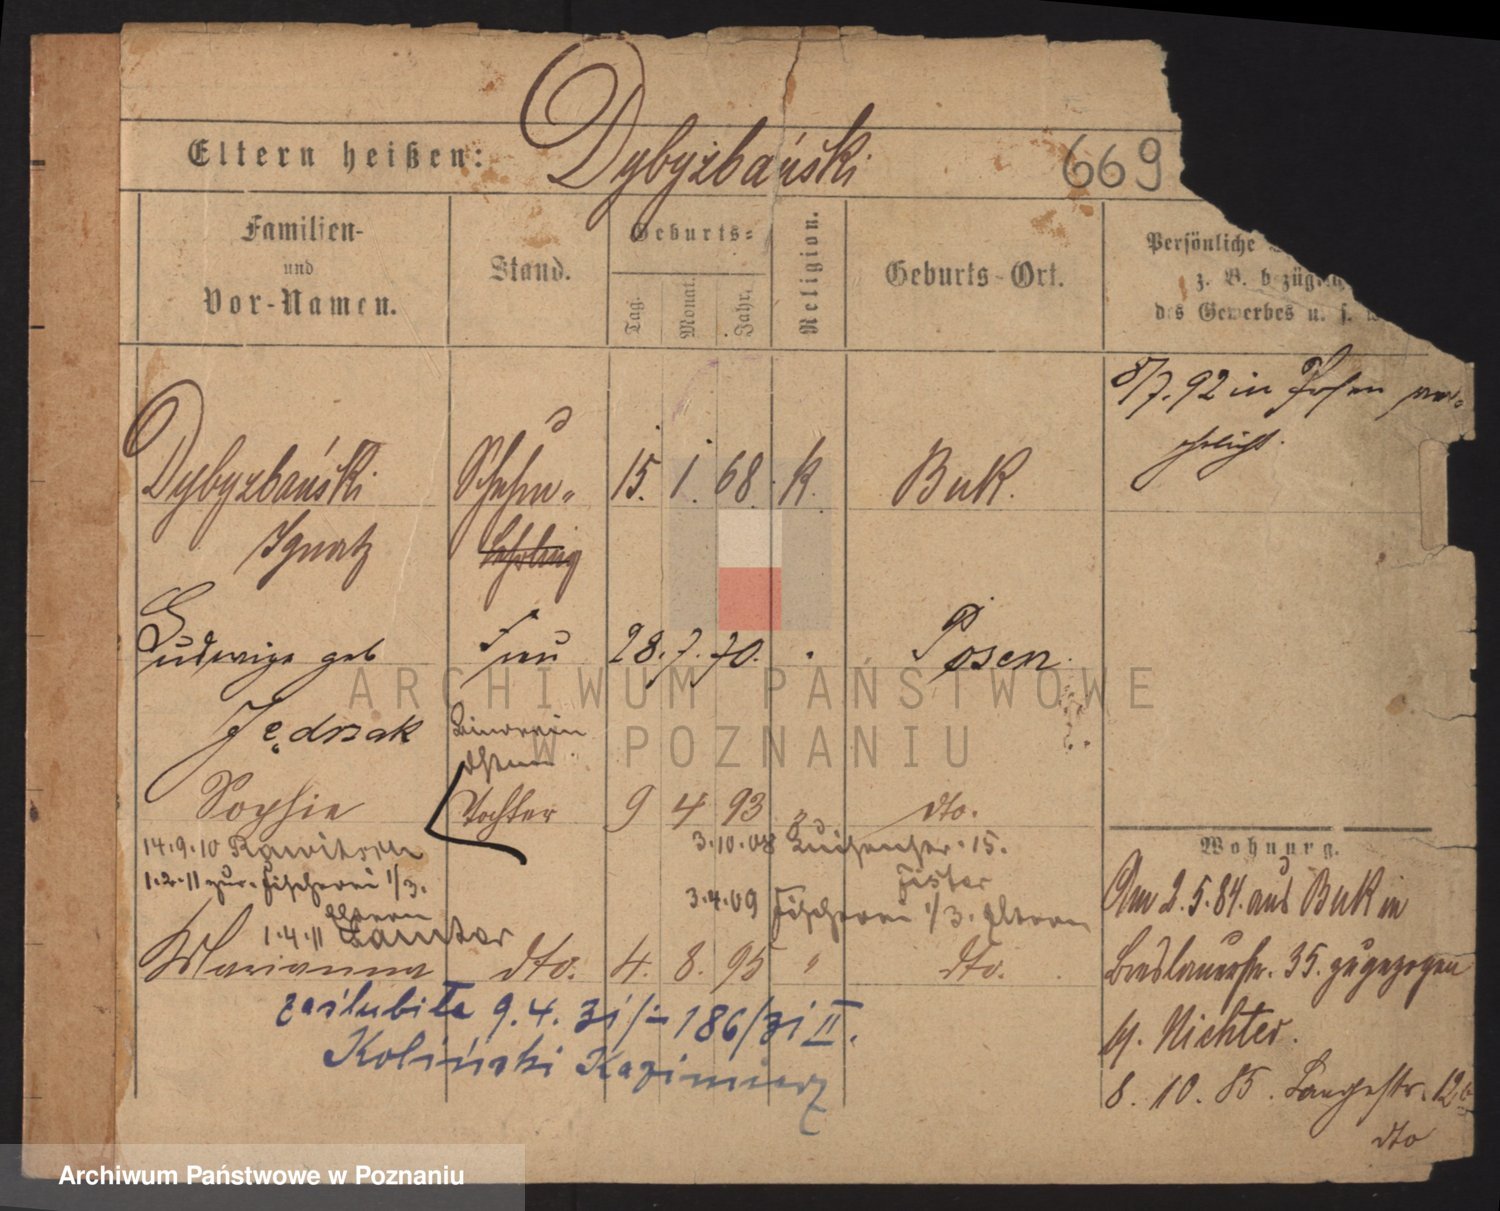 Eltern heißen: Dybyzbański 669
Familien-
und
Vor-Namen.
Stand.
Geburts=
Tag.
Monat.
Jahr.
Religion.
Geburts-Ort.
Persönliche
z. B. bezüg
des Gewerbes u. s. w
8/7. 92 in Posen ver=
ehelicht.
Dybyzbański
Ignatz
Schuhm=
Lehrling
15. 1. 68. k. Buk.
Ludwiga geb
Jędrzak
Frau
28. 7. 70. Posen
Sophie Tochter 9 4 93 " dto.
14.9.10 Rawitsch
1.2.11 zur. Fischerei 1/3.
1.4.11 Eltern
3.10.08 15.
3.4.09 Fischerei 1/3. Eltern
Marianna dto. 4. 8. 95 " dto.
zaślubiła 9.4. 31/- 186/31 II.
Koliński Kazimierz
Wohnung.
Am 2.5.84. aus Buk in
Breslauerstr. 35. zugezogen
Nichter.
8. 10. 85. Langestr. 12
dto
ARCHIWUM PAŃSTWOWE
W POZNANIU
Archiwum Państwowe w Poznaniu